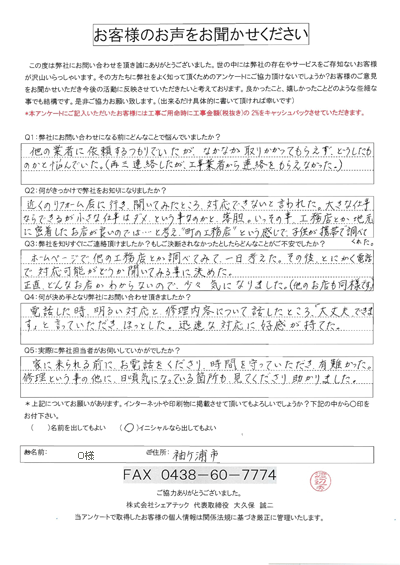 お客様のお声をお聞かせください
この度は弊社にお問い合わせを頂き誠にありがとうございました。世の中には弊社の存在やサービスをご存知ないお客様
が沢山いらっしゃいます。その方たちに弊社をよく知って頂くためのアンケートにご協力頂けないでしょうか?お客様のご意見
をお聞かせいただき今後の活動に反映させていただきたいと考えております。良かったこと、嬉しかったことどのような些細な
事でも結構です。是非ご協力お願い致します。(出来るだけ具体的に書いて頂ければ幸いです)
*本アンケートにご記入いただいたお客様には工事ご用命時に工事金額(税抜き)の2%をキャッシュバックさせていただきます。
Q1:弊社にお問い合わせになる前にどんなことで悩んでいましたか?
他の業者に依頼するつもりでいたが、なかなか取りかかってもらえず、どうしたも
のかと悩んでいた。(再三連絡したが、工事業者から連絡をもらえなかった。)
Q2:何がきっかけで弊社をお知りになりましたか?
近くのリフォーム店に行き、聞いてみたところ、対応できないと言われた。大きな仕事
ならできるが小さな仕事はダメ、という事なのかと、落胆。いっその事、工務店とか地元
に密着したお店が良いのでは…と考え、"町の工務店"という感じで、子供が携帯で調べて
くれた。
Q3:弊社を知りすぐにご連絡頂けましたか?もしご決断されなかったとしたらどんなことがご不安でしたか?
ホームページで他の工務店とか調べてみて、一日考えた。その後、とにかく電話
で対応可能かどうか聞いてみる事に決めた。
正直、どんなお店かわからないので、少々気になりました。(他のお店も同様です)
Q4:何が決め手となり弊社にお問い合わせ頂けましたか?
電話した時、明るい対応と、修理内容について話したところ、"大丈夫、できま
す"と言っていただき、ほっとした。迅速な対応に好感が持てた。
Q5:実際に弊社担当者がお伺いしていかがでしたか?
家に来られる前に、お電話をくださり、時間を守っていただき有難かった。
修理という事の他に、日頃気になっている箇所も見てくださり助かりました。
*上記についてお願いがあります。インターネットや印刷物に掲載させて頂いてもよろしいでしょうか?下記の中から〇印を
お付け下さい。
( )名前を出してもよい (○)イニシャルなら出してもよい
お名前: O様 ご住所: 袖ケ浦市
FAX 0438-60-7774
ご協力ありがとうございました。
株式会社シェアテック 代表取締役 大久保 誠二
当アンケートで取得したお客様の個人情報は関係法規に基づき厳正に管理いたします。